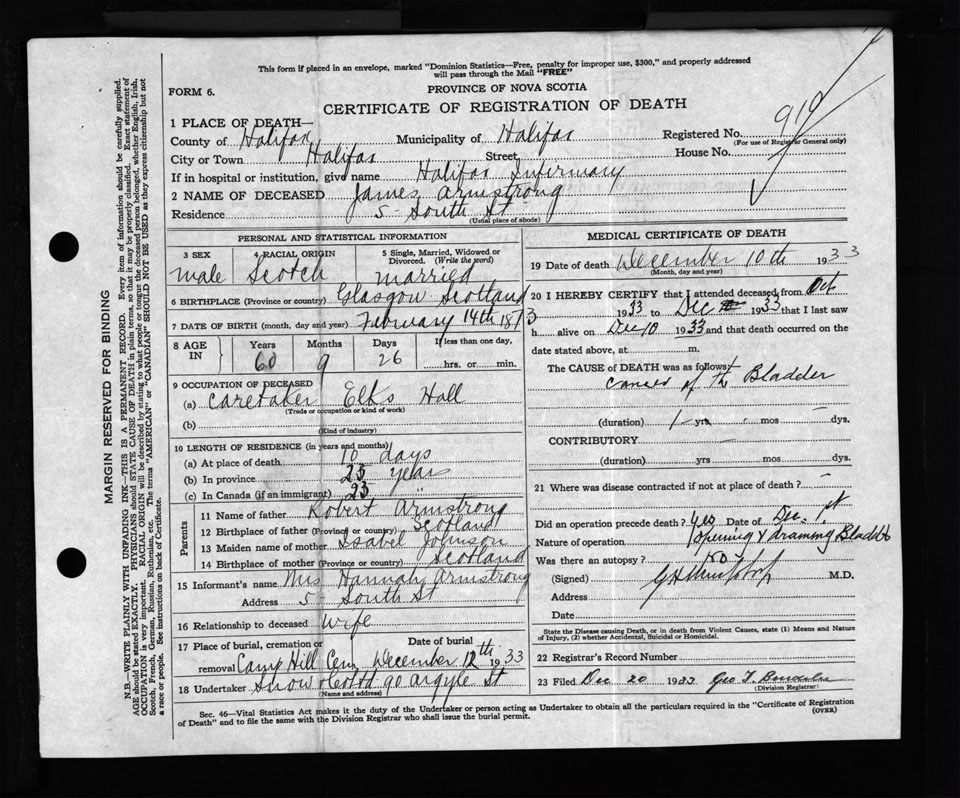 This form if placed in an envelope, marked "Dominion Statistics—Free, penalty for improper use, $300," and properly addressed
will pass through the Mail "FREE"
FORM 6.
PROVINCE OF NOVA SCOTIA
CERTIFICATE OF REGISTRATION OF DEATH
1 PLACE OF DEATH—
County of Halifax Municipality of Halifax Registered No. 919
(For use of Registrar General only)
City or Town Halifax Street House No.
If in hospital or institution, give name Halifax Infirmary
2 NAME OF DECEASED James Armstrong
Residence 5 South St
(Usual place of abode)
PERSONAL AND STATISTICAL INFORMATION
3 SEX 4 RACIAL ORIGIN 5 Single, Married, Widowed or
Divorced. (Write the word)
male Scotch married
6 BIRTHPLACE (Province or country) Glasgow Scotland
7 DATE OF BIRTH (month, day and year) February 14th 1873
8 AGE IN Years Months Days If less than one day,
60 9 26 hrs. or min.
9 OCCUPATION OF DECEASED
(a) Caretaker Elks Hall
(Trade or occupation or kind of work)
(b)
(Kind of industry)
10 LENGTH OF RESIDENCE (in years and months)
(a) At place of death 10 days
(b) In province 23 years
(c) In Canada (if an immigrant) 23 "
Parents
11 Name of father Robert Armstrong
12 Birthplace of father (Province or country) Scotland
13 Maiden name of mother Isabel Johnson
14 Birthplace of mother (Province or country) Scotland
15 Informant's name Mrs Hannah Armstrong
Address 5 South St
16 Relationship to deceased wife
17 Place of burial, cremation or Date of burial
removal Camp Hill Cem December 12th 1933
18 Undertaker Snow & Co Ltd 90 Argyle St
(Name and address)
MEDICAL CERTIFICATE OF DEATH
19 Date of death December 10th 1933
(Month, day and year)
20 I HEREBY CERTIFY that I attended deceased from Oct
1933 to Dec 1933 that I last saw
h alive on Dec 10 1933 and that death occurred on the
date stated above, at m.
The CAUSE of DEATH was as follows:
Cancer of the Bladder
(duration) 1 yrs. - mos - dys.
CONTRIBUTORY —
(duration) yrs mos dys.
21 Where was disease contracted if not at place of death? —
Did an operation precede death? yes Date of Dec. 1st
Nature of operation Opening & draining Bladder
Was there an autopsy? no
(Signed) M.D.
Address
Date
State the Disease causing Death, or in death from Violent Causes, state (1) Means and Nature
of Injury, (2) whether Accidental, Suicidal or Homicidal.
22 Registrar's Record Number
23 Filed Dec 20 1933 Geo T.
(Division Registrar)
Sec. 46—Vital Statistics Act makes it the duty of the Undertaker or person acting as Undertaker to obtain all the particulars required in the "Certificate of Registration
of Death" and to file the same with the Division Registrar who shall issue the burial permit.
(OVER)
MARGIN RESERVED FOR BINDING
N.B.—WRITE PLAINLY WITH UNFADING INK—THIS IS A PERMANENT RECORD. Every item of information should be carefully supplied.
AGE should be stated EXACTLY. PHYSICIANS should STATE CAUSE OF DEATH in plain terms, so that it may be properly classified. Exact statement of
OCCUPATION is very important. RACIAL ORIGIN will be described by stating to what people or tongue the deceased person belonged, whether English, Irish,
Scotch, French, German, Russian, Ruthenian, etc. The terms "AMERICAN" or "CANADIAN" SHOULD NOT BE USED as they express citizenship but not
a race or people. See instructions on back of Certificate.